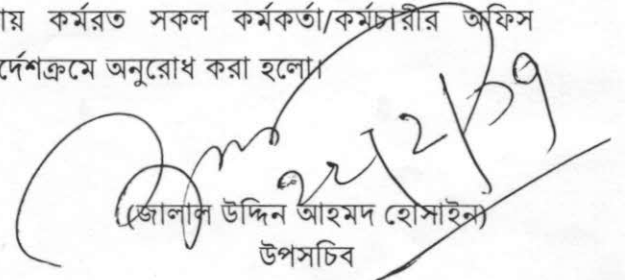 ায় কর্মরত সকল কর্মকর্তা/কর্মচারীর অফিস
র্দেশক্রমে অনুরোধ করা হলো।
(জালাল উদ্দিন আহমদ হোসাইন)
উপসচিব